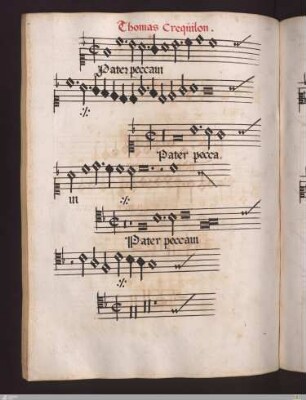 Thomas Crequilon.
Pater peccaui
Pater pecca
ui
Pater peccaui